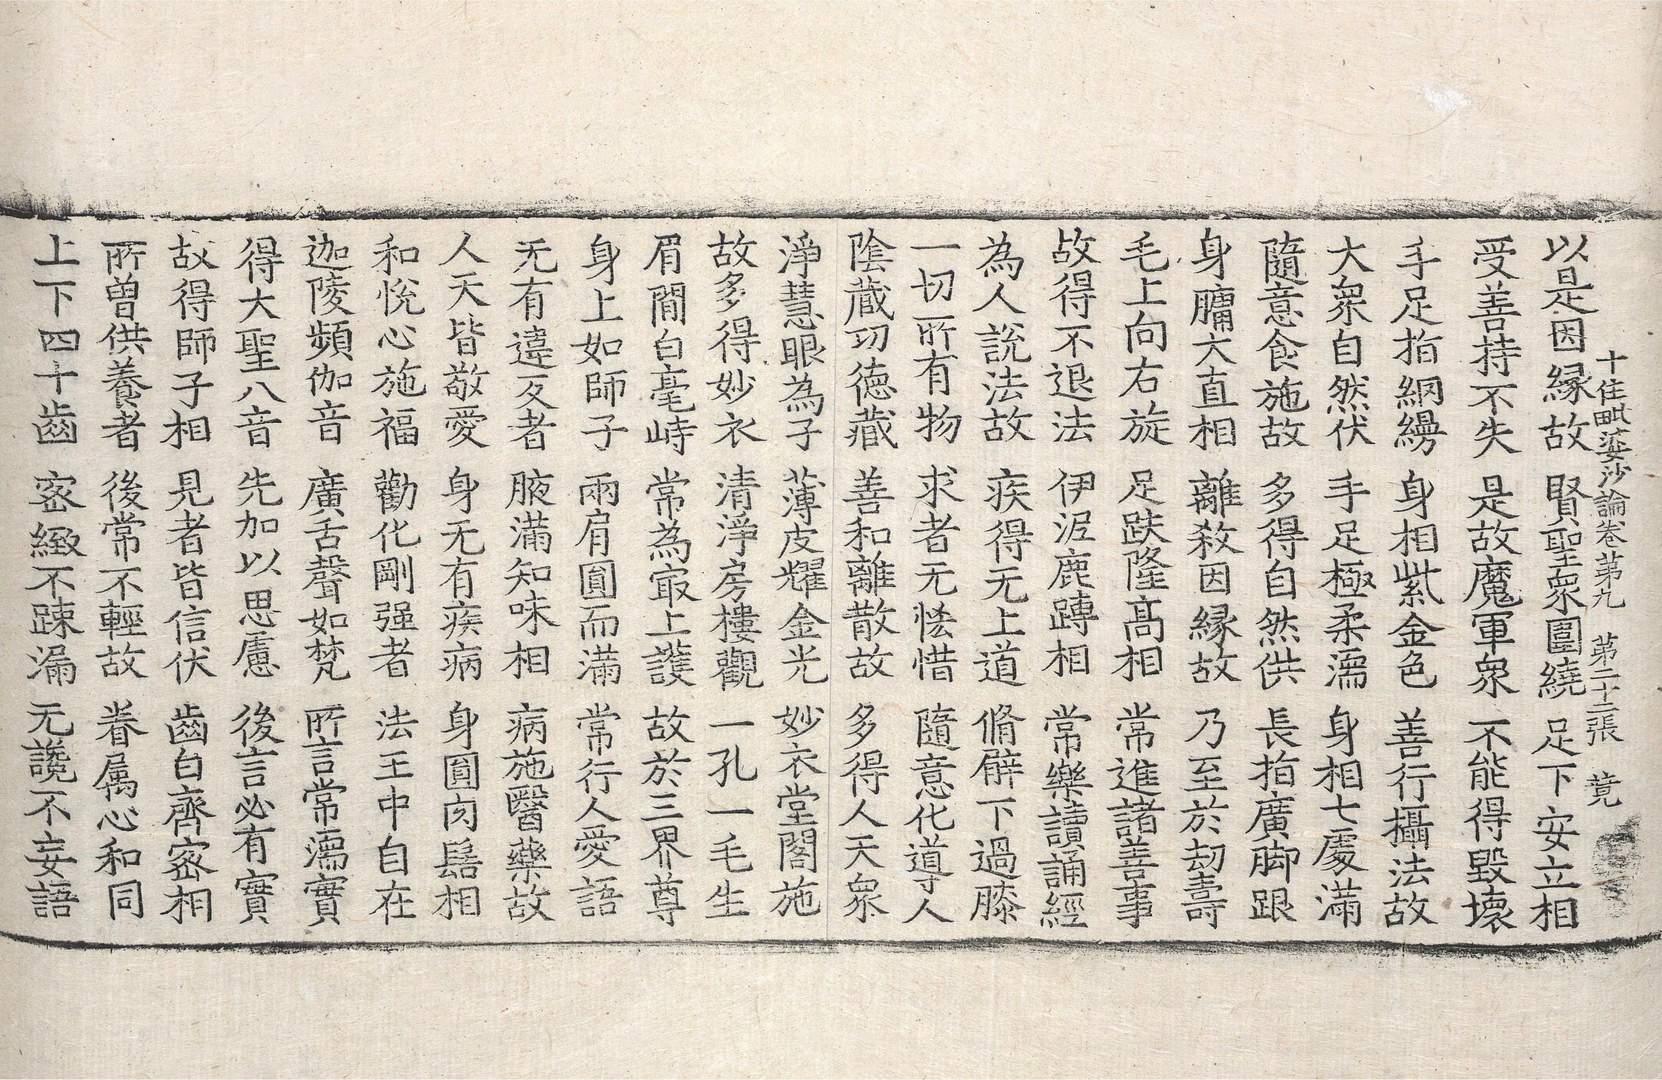 十住毗婆沙論卷第九　第二十二張　竟
以是因縁故　賢聖衆圍繞　足下安立相
受善持不失　是故魔軍衆　不能得毀壞
手足指網縵　身相紫金色　善行攝法故
大衆自然伏　手足極柔濡　身相七處滿
隨意食施故　多得自然供　長指廣脚跟
身膅大直相　離殺因縁故　乃至於劫壽
毛上向右旋　足趺隆髙相　常進諸善事
故得不退法　伊泥鹿蹲相　常樂讀誦經
為人說法故　疾得无上道　脩臂下過膝
一切所有物　求者无恡惜　隨意化導人
陰藏功德藏　善和離散故　多得人天衆
淨慧眼為子　薄皮耀金光　妙衣堂閣施
故多得妙衣　清淨房樓觀　一孔一毛生
眉間白毫峙　常為㝡上護　故於三界尊
身上如師子　兩肩圓而滿　常行人愛語
无有違反者　腋滿知味相　病施醫藥故
人天皆敬愛　身无有疾病　身圓肉髻相
和悅心施福　勸化剛强者　法王中自在
迦陵頻伽音　廣舌聲如梵　所言常濡實
得大聖八音　先加以思慮　後言必有實
故得師子相　見者皆信伏　齒白齊宻相
所曽供養者　後常不輕故　眷属心和同
上下四十齒　宻緻不踈漏　无讒不妄語